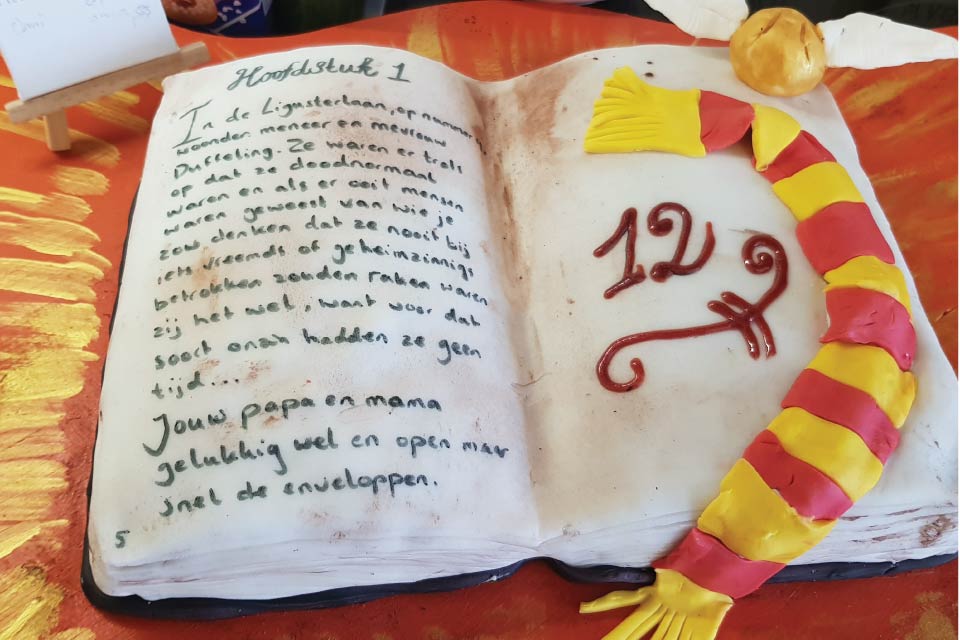 Hoofdstuk 1
In de Ligusterlaan, op nummer
woonden meneer en mevrouw
Duffeling. Ze waren er trots
op dat ze doodnormaal
waren en als er ooit mensen
waren geweest van wie je
zou denken dat ze nooit bij
iets vreemds of geheimzinnigs
betrokken zouden raken waren
zij het wel, want voor dat
soort onzin hadden ze geen
tijd...
Jouw papa en mama
gelukkig wel en open maar
snel de enveloppen.
5
12